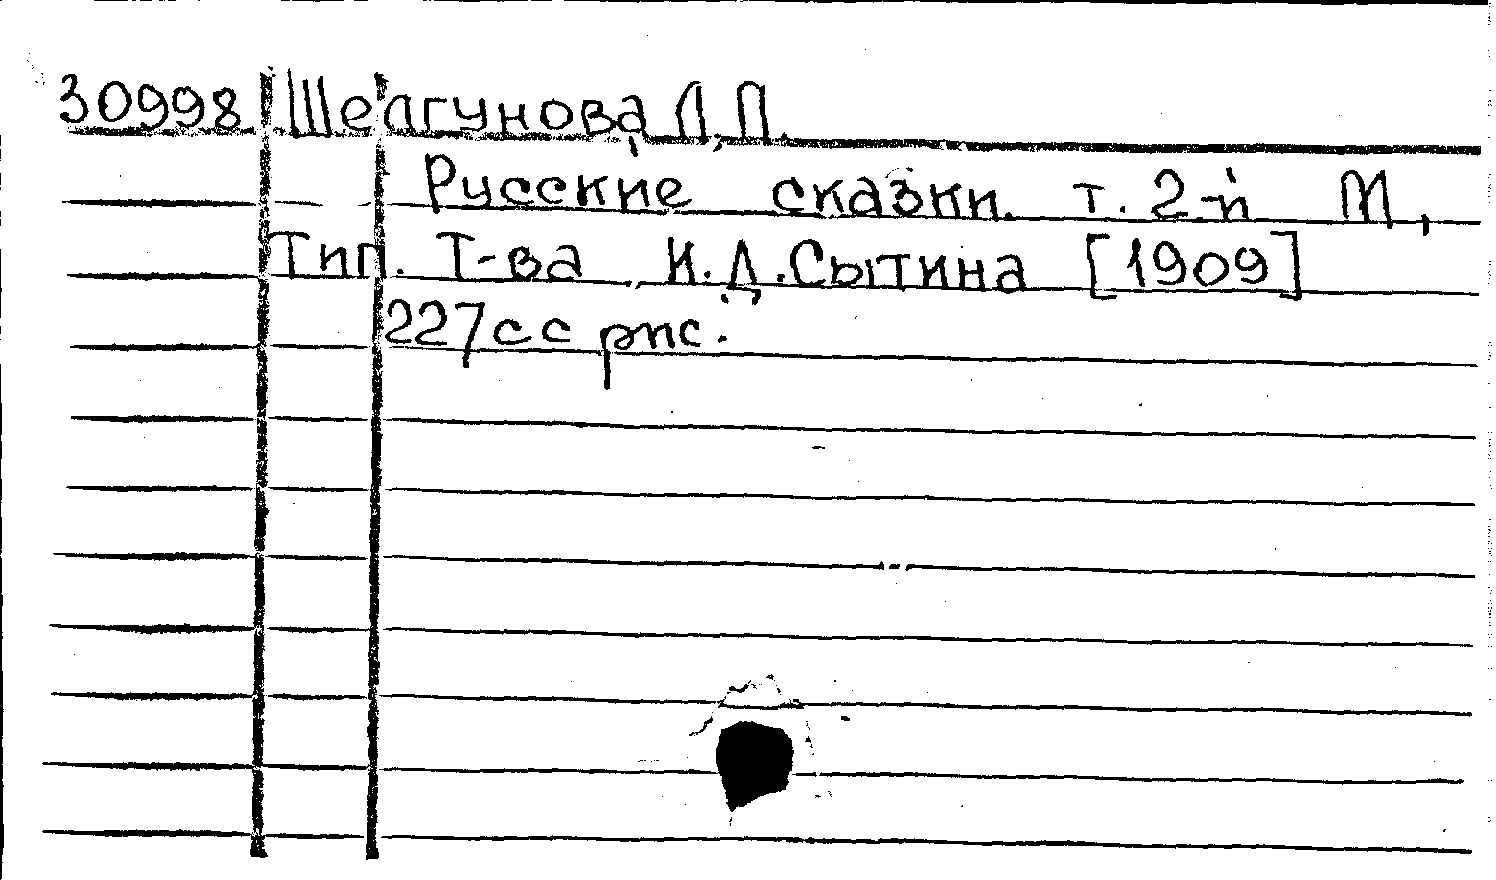 30998 Шелгунова, Л.П.
Русские сказки. т. 2-й М,
Тип. Т-ва И.Д.Сытина [1909]
227сс рис.